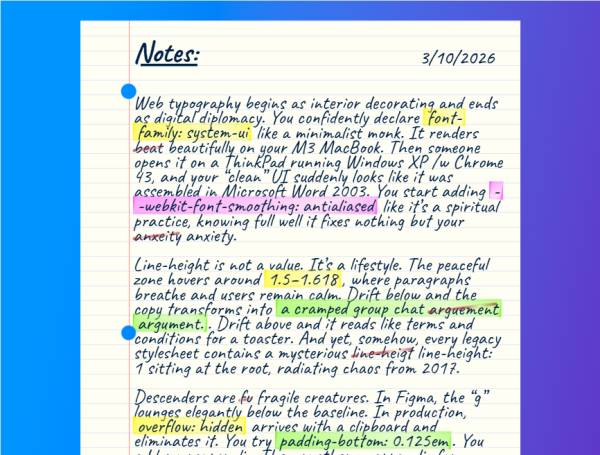 Notes:
3/10/2026
Web typography begins as interior decorating and ends
as digital diplomacy. You confidently declare font-
family: system-ui like a minimalist monk. It renders
beat beautifully on your M3 MacBook. Then someone
opens it on a ThinkPad running Windows XP /w Chrome
43, and your “clean” UI suddenly looks like it was
assembled in Microsoft Word 2003. You start adding -
-webkit-font-smoothing: antialiased like it’s a spiritual
practice, knowing full well it fixes nothing but your
anxeity anxiety.
Line-height is not a value. It’s a lifestyle. The peaceful
zone hovers around 1.5–1.618, where paragraphs
breathe and users remain calm. Drift below and the
copy transforms into a cramped group chat arguement
argument. Drift above and it reads like terms and
conditions for a toaster. And yet, somehow, every legacy
stylesheet contains a mysterious line-heigt line-height:
1 sitting at the root, radiating chaos from 2017.
Descenders are fu fragile creatures. In Figma, the “g”
lounges elegantly below the baseline. In production,
overflow: hidden arrives with a clipboard and
eliminates it. You try padding-bottom: 0.125em. You